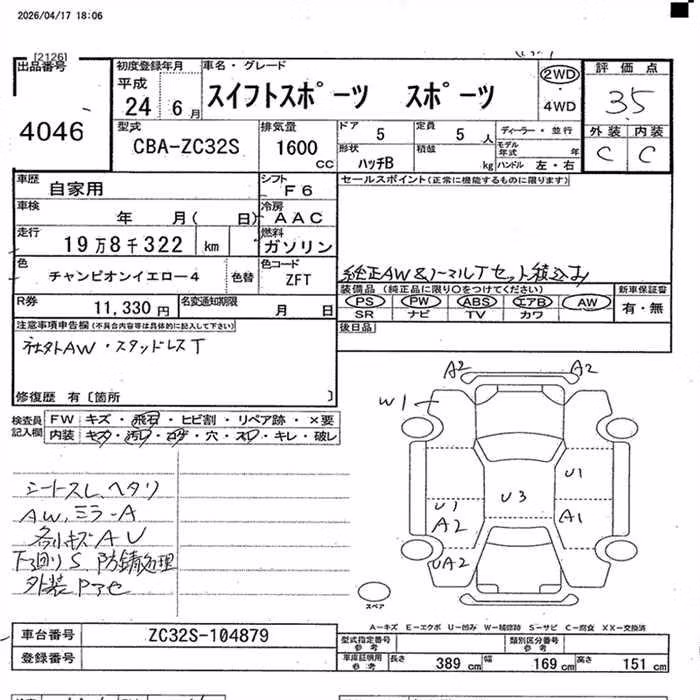 2026/04/17 18:06
[2126]
出品番号 初度登録年月 車名・グレード 評価点
平成
24 6月 スイフトスポーツ スポーツ 2WD 4WD 3.5
4046
型式 排気量 ドア 5 定員 5人 ディーラー・並行 外装 内装
CBA-ZC32S 1600cc 形状 ハッチB 積載 kg モデル年式 年 ハンドル 左・右 C C
車歴 自家用 シフト F6 セールスポイント(正常に機能するものに限ります)
車検 年 月( 日) 冷房 AAC
走行 19万8千322 km 燃料 ガソリン
色 チャンピオンイエロー4 色替 色コード ZFT 純正AW&ノーマルTセット積込み
装備品(純正品に限り○をつけてください) 新車保証書
R券 11,330円 名変通知期限 月 日 PS PW ABS エアB AW 有・無
SR ナビ TV カワ
注意事項申告欄(不具合内容等は具体的に記入して下さい) 後日品
社外AW・スタッドレスT
修復歴 有〔箇所 〕
検査員記入欄 FW キズ・飛石・ヒビ割・リペア跡・×要
内装 キズ・汚レ・コゲ・穴・スレ・キレ・破レ
A2 A2
W1
U1
U3
U1
A2 A1
UA2
シートスレ、ヘタリ
AW、ミラーA
各小キズAU
下廻りS、防錆処理
外装Pアセ
スペア
A−キズ E−エクボ U−凹み W−補修跡 S−サビ C−腐食 XX−交換済
車台番号 ZC32S-104879 型式指定番号 参考 類別区分番号 参考
登録番号 車庫証明用 参考 長さ 389cm 幅 169cm 高さ 151cm